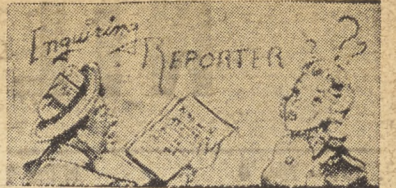 Inquiring
REPORTER